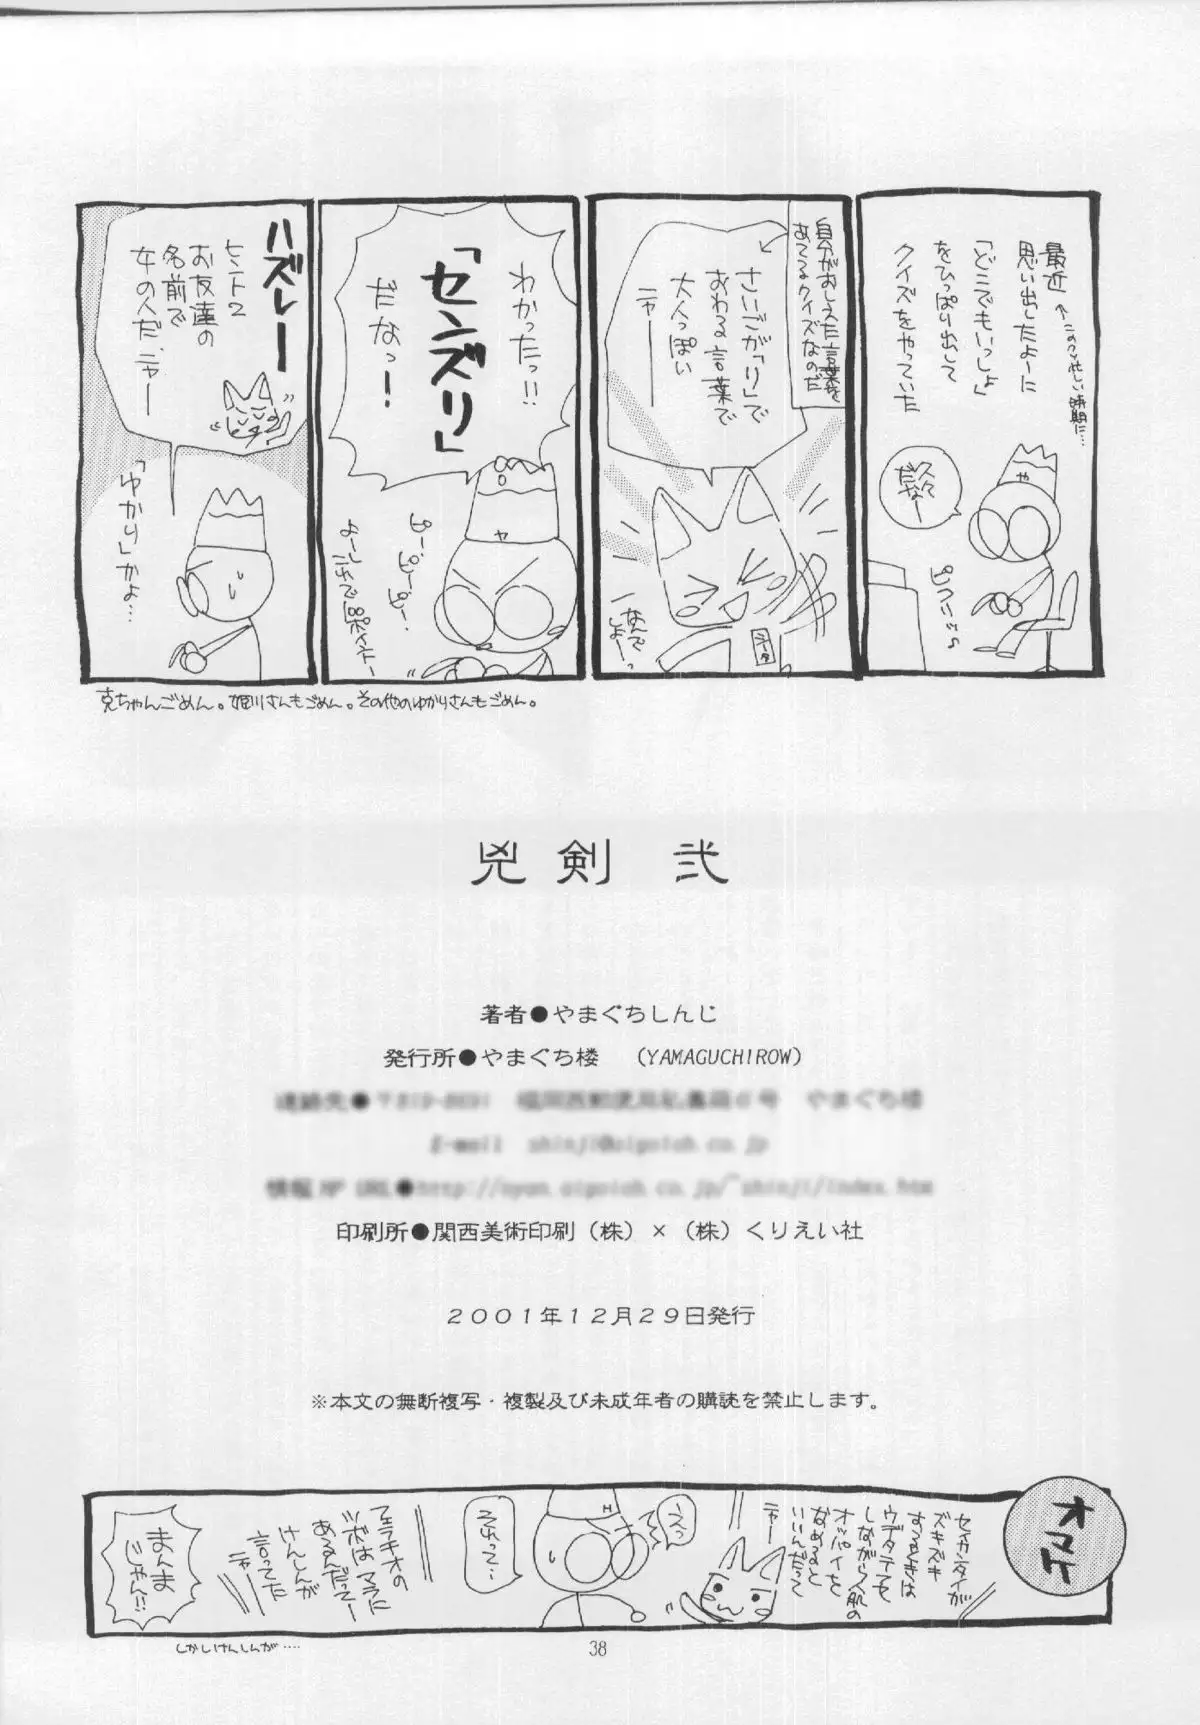 最近
思い出したよーに
「どこでもいっしょ」
をひっぱり出して
クイズをやっていた
久々
だなー
ヤ
自分がおしえた言葉を
あてるクイズなのだ
さいごが「り」で
おわる言葉で
大人っぽい
ニャーー
なんで
しょーっ
わかったっ!!
「センズリ」
だなっー!
ヤ
ハズレー
ヒント2
お友達の
名前で
女の人だ、ニャー
「ゆかり」かよ…
克ちゃんごめん。姫川さんもごめん。その他のゆかりさんもごめん。
兇剣 弐
著者●やまぐちしんじ
発行所●やまぐち楼 （YAMAGUCHIROW）
印刷所●関西美術印刷（株）×（株）くりえい社
２００１年１２月２９日発行
※本文の無断複写・複製及び未成年者の購読を禁止します。
オマケ
セイカンタイが
ズキズキ
するときは
ウデタテを
しながら人肌の
オッパイを
なめると
いいんだって
ニャー
えっ
H
それって‥
フェラチオの
ツボはマラに
あるんだってー
けんしんが
言ってた
ニャー
まんま
じゃん!!
しかしけんしんが‥‥
38